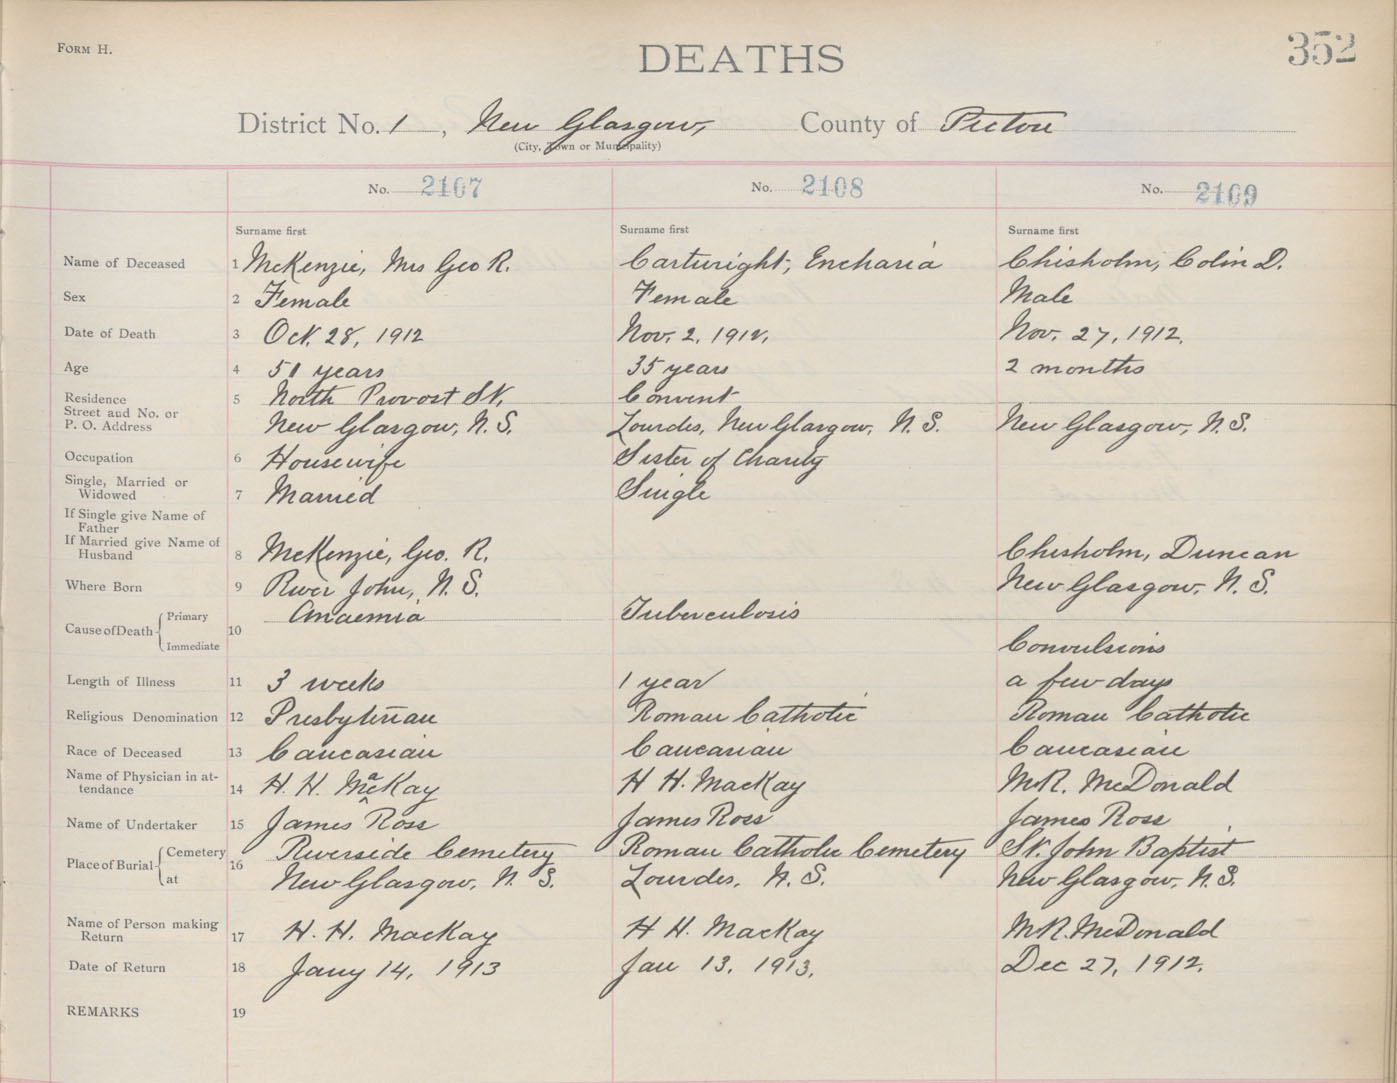 FORM H.
DEATHS
352
District No. 1, New Glasgow, County of Pictou
(City, Town or Municipality)
No. 2107 No. 2108 No. 2109
Surname first Surname first Surname first
Name of Deceased 1 McKenzie, Mrs Geo R. Cartwright, Encharia Chisholm, Colin D.
Sex 2 Female Female Male
Date of Death 3 Oct. 28, 1912 Nov. 2, 1912, Nov. 27, 1912.
Age 4 51 years 35 years 2 months
Residence 5 North Provost St, Convent
Street and No. or
P. O. Address New Glasgow, N. S. Lourdes, New Glasgow, N. S. New Glasgow, N. S.
Occupation 6 Housewife Sister of Charity
Single, Married or
Widowed 7 Married Single
If Single give Name of
Father
If Married give Name of
Husband 8 McKenzie, Geo. R. Chisholm, Duncan
Where Born 9 River John, N. S. New Glasgow, N. S.
Cause of Death 10 Primary Anaemia Tuberculosis
Immediate Convulsions
Length of Illness 11 3 weeks 1 year a few days
Religious Denomination 12 Presbyterian Roman Catholic Roman Catholic
Race of Deceased 13 Caucasian Caucasian Caucasian
Name of Physician in at-
tendance 14 H. H. MacKay H H. MacKay M R. McDonald
Name of Undertaker 15 James Ross James Ross James Ross
Place of Burial 16 Cemetery Riverside Cemetery Roman Catholic Cemetery St. John Baptist
at New Glasgow, N. S. Lourdes, N. S. New Glasgow, N. S.
Name of Person making
Return 17 H. H. MacKay H H. MacKay M R. McDonald
Date of Return 18 Jany 14, 1913 Jan 13, 1913, Dec 27, 1912.
REMARKS 19